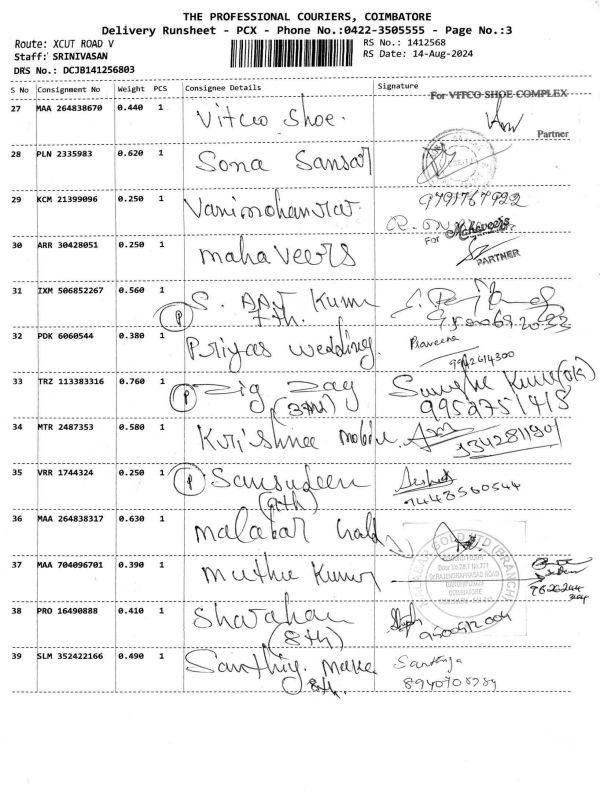 THE PROFESSIONAL COURIERS, COIMBATORE
Delivery Runsheet - PCX - Phone No.:0422-3505555 - Page No.:3
Route: XCUT ROAD V
RS No.: 1412568
Staff: SRINIVASAN
RS Date: 14-Aug-2024
DRS No.: DCJB141256803
S No Consignment No Weight PCS Consignee Details Signature
For VITCO SHOE COMPLEX
27 MAA 264838670 0.440 1 Vitco Shoe.
Partner
28 PLN 2335983 0.620 1 Sona Sansar
29 KCM 21399096 0.250 1 Vanimohanrar 9791767922
For Mahaveers
30 ARR 30428051 0.250 1 mahaveers
PARTNER
31 IXM 506852267 0.560 1 S. Kumr
P 7th.
32 PDK 6060544 0.380 1 Priyas wedding. Praveena
9942614300
33 TRZ 113383316 0.760 1 P Zig Zag
(3rd)
34 MTR 2487353 0.580 1 Krishnee mobile.
35 VRR 1744324 0.250 1 P Samsudeen
(9th) 9443560544
36 MAA 264838317 0.630 1 malabar Gold
37 MAA 704096701 0.390 1 muthu Kumr
MALABAR GOLD (BRANCH)
COIMBATORE
38 PRO 16490888 0.410 1 Sharahan
(8th) 9500512009
39 SLM 352422166 0.490 1 Santhiy. make Santhiya
8th. 8940708789